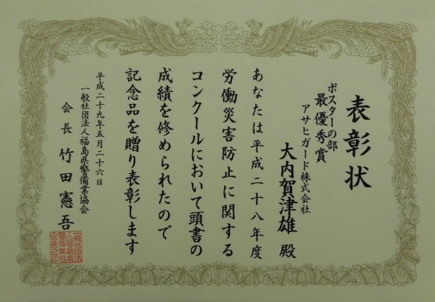 表彰状
ポスターの部
最優秀賞
アサヒガード株式会社
大内賀津雄 殿
あなたは平成二十八年度
労働災害防止に関する
コンクールにおいて頭書の
成績を修められたので
記念品を贈り表彰します
平成二十九年五月二十六日
一般社団法人福島県警備業協会
会長 竹田憲吾